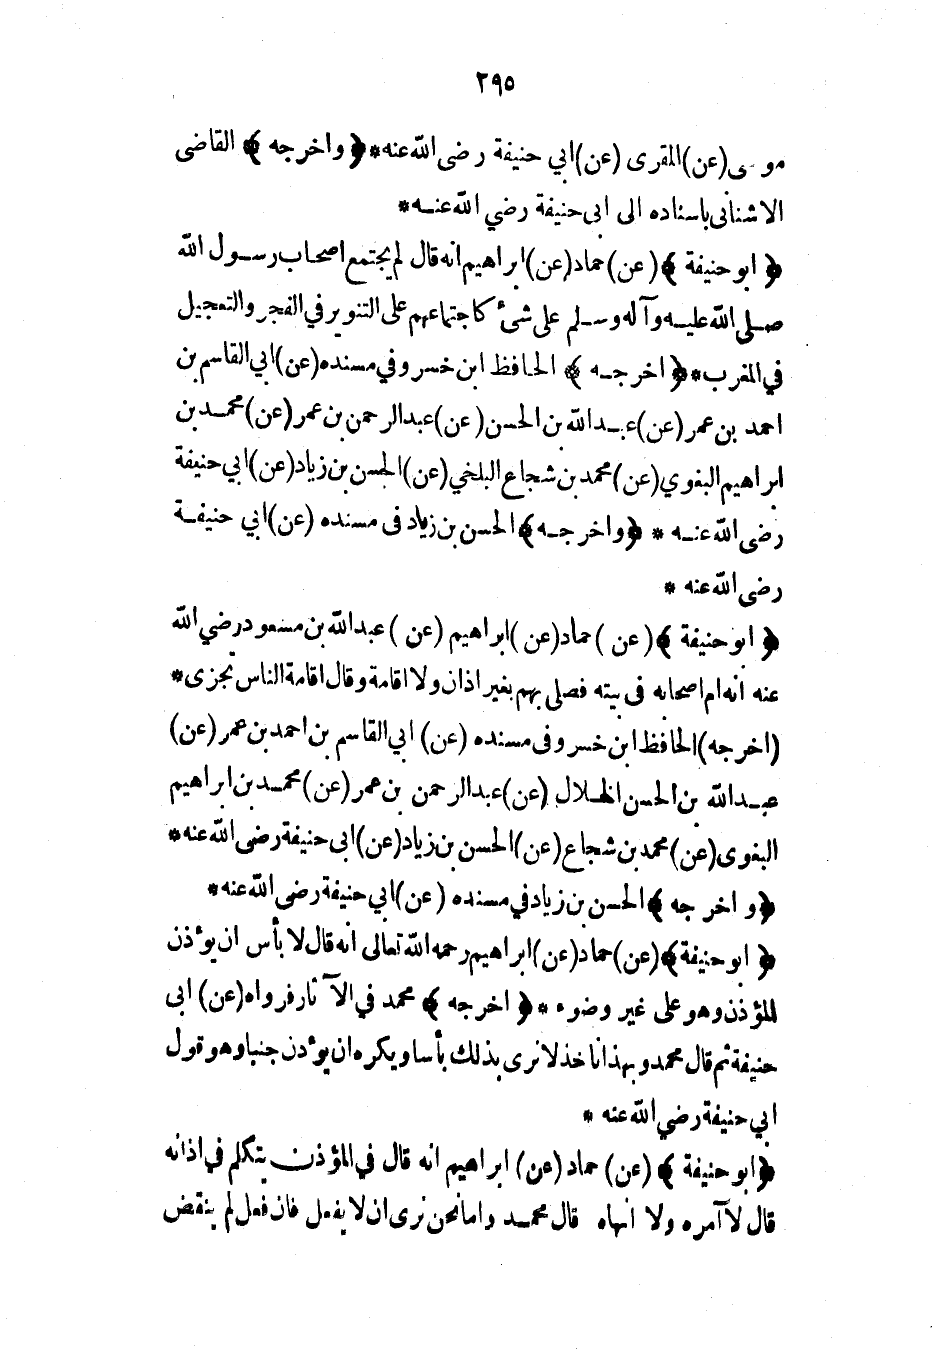 ٢٩٥
موسى (عن) المقرى (عن) ابي حنيفة رضى الله عنه * ﴿ واخرجه ﴾ القاضى
الاشنانى باسناده الى ابى حنيفة رضي الله عنه *
﴿ ابو حنيفة ﴾ (عن) حماد (عن) ابراهيم انه قال لم يجتمع اصحاب رسول الله
صلى الله عليه وآله وسلم على شئ كاجتماعهم على التنوير في الفجر والتعجيل
في المغرب * ﴿ اخرجه ﴾ الحافظ ابن خسرو في مسنده (عن) ابي القاسم بن
احمد بن عمر (عن) عبد الله بن الحسن (عن) عبد الرحمن بن عمر (عن) محمد بن
ابراهيم البغوي (عن) محمد بن شجاع البلخي (عن) الحسن بن زياد (عن) ابي حنيفة
رضى الله عنه * ﴿ واخرجه ﴾ الحسن بن زياد فى مسنده (عن) ابي حنيفة
رضى الله عنه *
﴿ ابو حنيفة ﴾ (عن) حماد (عن) ابراهيم (عن) عبد الله بن مسعود رضي الله
عنه انه ام اصحابه فى بيته فصلى بهم بغير اذان ولا اقامة وقال اقامة الناس تجزى *
(اخرجه) الحافظ ابن خسرو فى مسنده (عن) ابي القاسم بن احمد بن عمر (عن)
عبد الله بن الحسن الخلال (عن) عبد الرحمن بن عمر (عن) محمد بن ابراهيم
البغوى (عن) محمد بن شجاع (عن) الحسن بن زياد (عن) ابى حنيفة رضى الله عنه *
﴿ واخرجه ﴾ الحسن بن زياد في مسنده (عن) ابي حنيفة رضى الله عنه *
﴿ ابو حنيفة ﴾ (عن) حماد (عن) ابراهيم رحمه الله تعالى انه قال لا بأس ان يؤذن
المؤذن وهو على غير وضوء * ﴿ اخرجه ﴾ محمد في الآثار فرواه (عن) ابى
حنيفة ثم قال محمد وبهذا ناخذ لا نرى بذلك بأسا ويكره ان يؤذن جنبا وهو قول
ابي حنيفة رضي الله عنه *
﴿ ابو حنيفة ﴾ (عن) حماد (عن) ابراهيم انه قال في المؤذن يتكلم في اذانه
قال لا آمره ولا انهاه قال محمد واما نحن نرى ان لا يفعل فان فعل لم ينقض